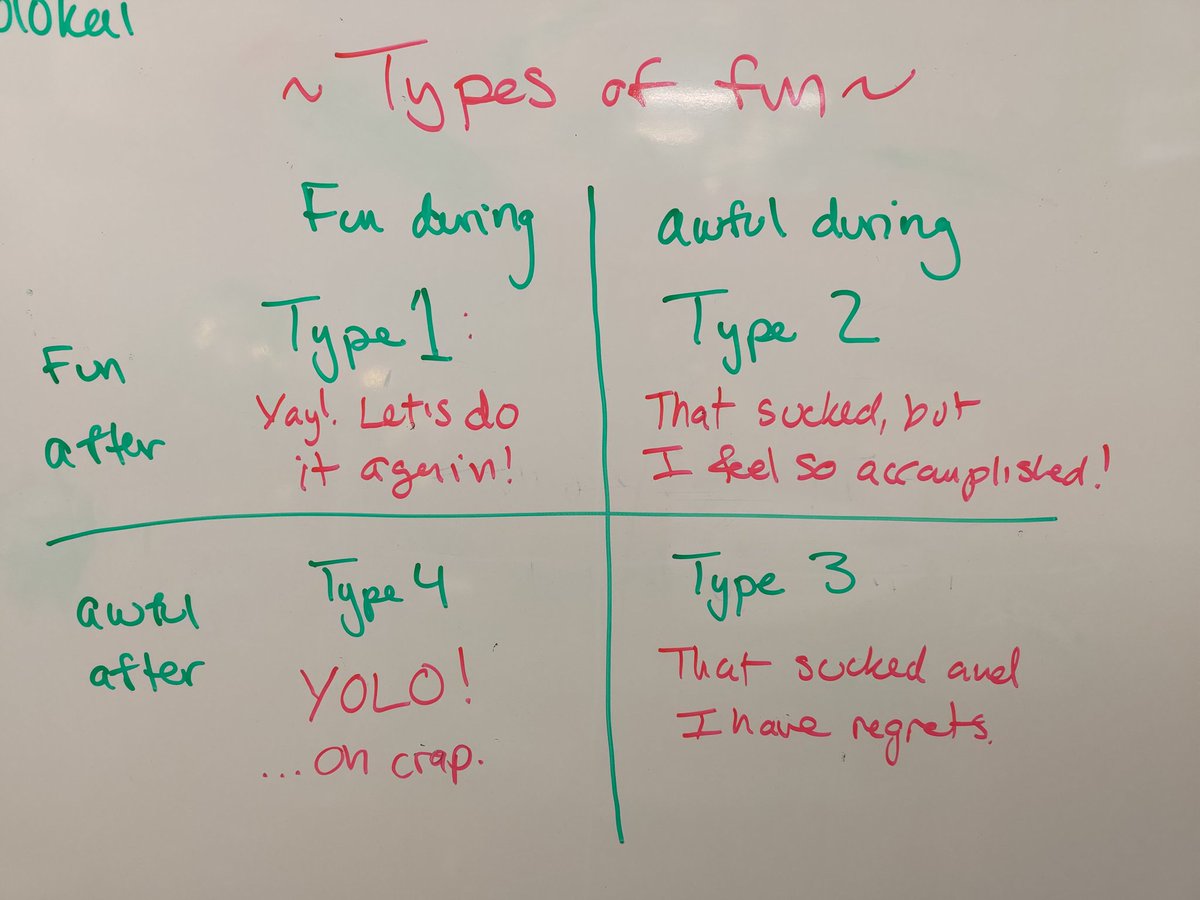 ~ Types of fun ~
Fun during
awful during
Fun
after
Type 1:
Yay! Let's do
it again!
Type 2
That sucked, but
I feel so accomplished!
awful
after
Type 4
YOLO!
...oh crap.
Type 3
That sucked and
I have regrets.